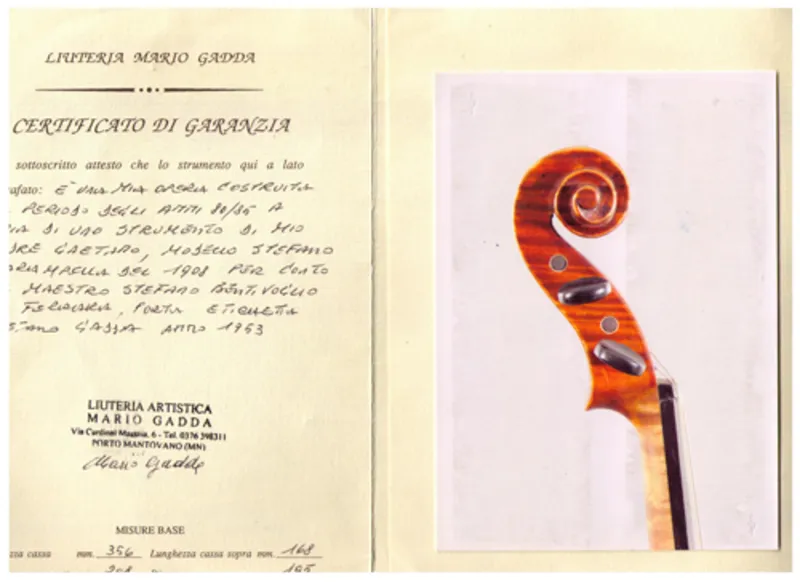 LIUTERIA MARIO GADDA
CERTIFICATO DI GARANZIA
sottoscritto attesto che lo strumento qui a lato
afato: E' UNA MIA OPERA COSTRUITA
PERIODO DEGLI ANNI 80/85 A
IA DI UNO STRUMENTO DI MIO
DRE GAETANO, MODELLO STEFANO
RAMPELLA DEL 1908 PER CONTO
MAESTRO STEFANO BENTIVOGLIO
FERRARA, PORTA ETICHETTA
GADDA ANNO 1953
LIUTERIA ARTISTICA
MARIO GADDA
Via Cardinal Mazzina, 6 - Tel. 0376 398311
PORTO MANTOVANO (MN)
Mario Gadda
MISURE BASE
zza cassa mm. 356 Lunghezza cassa sopra mm. 168